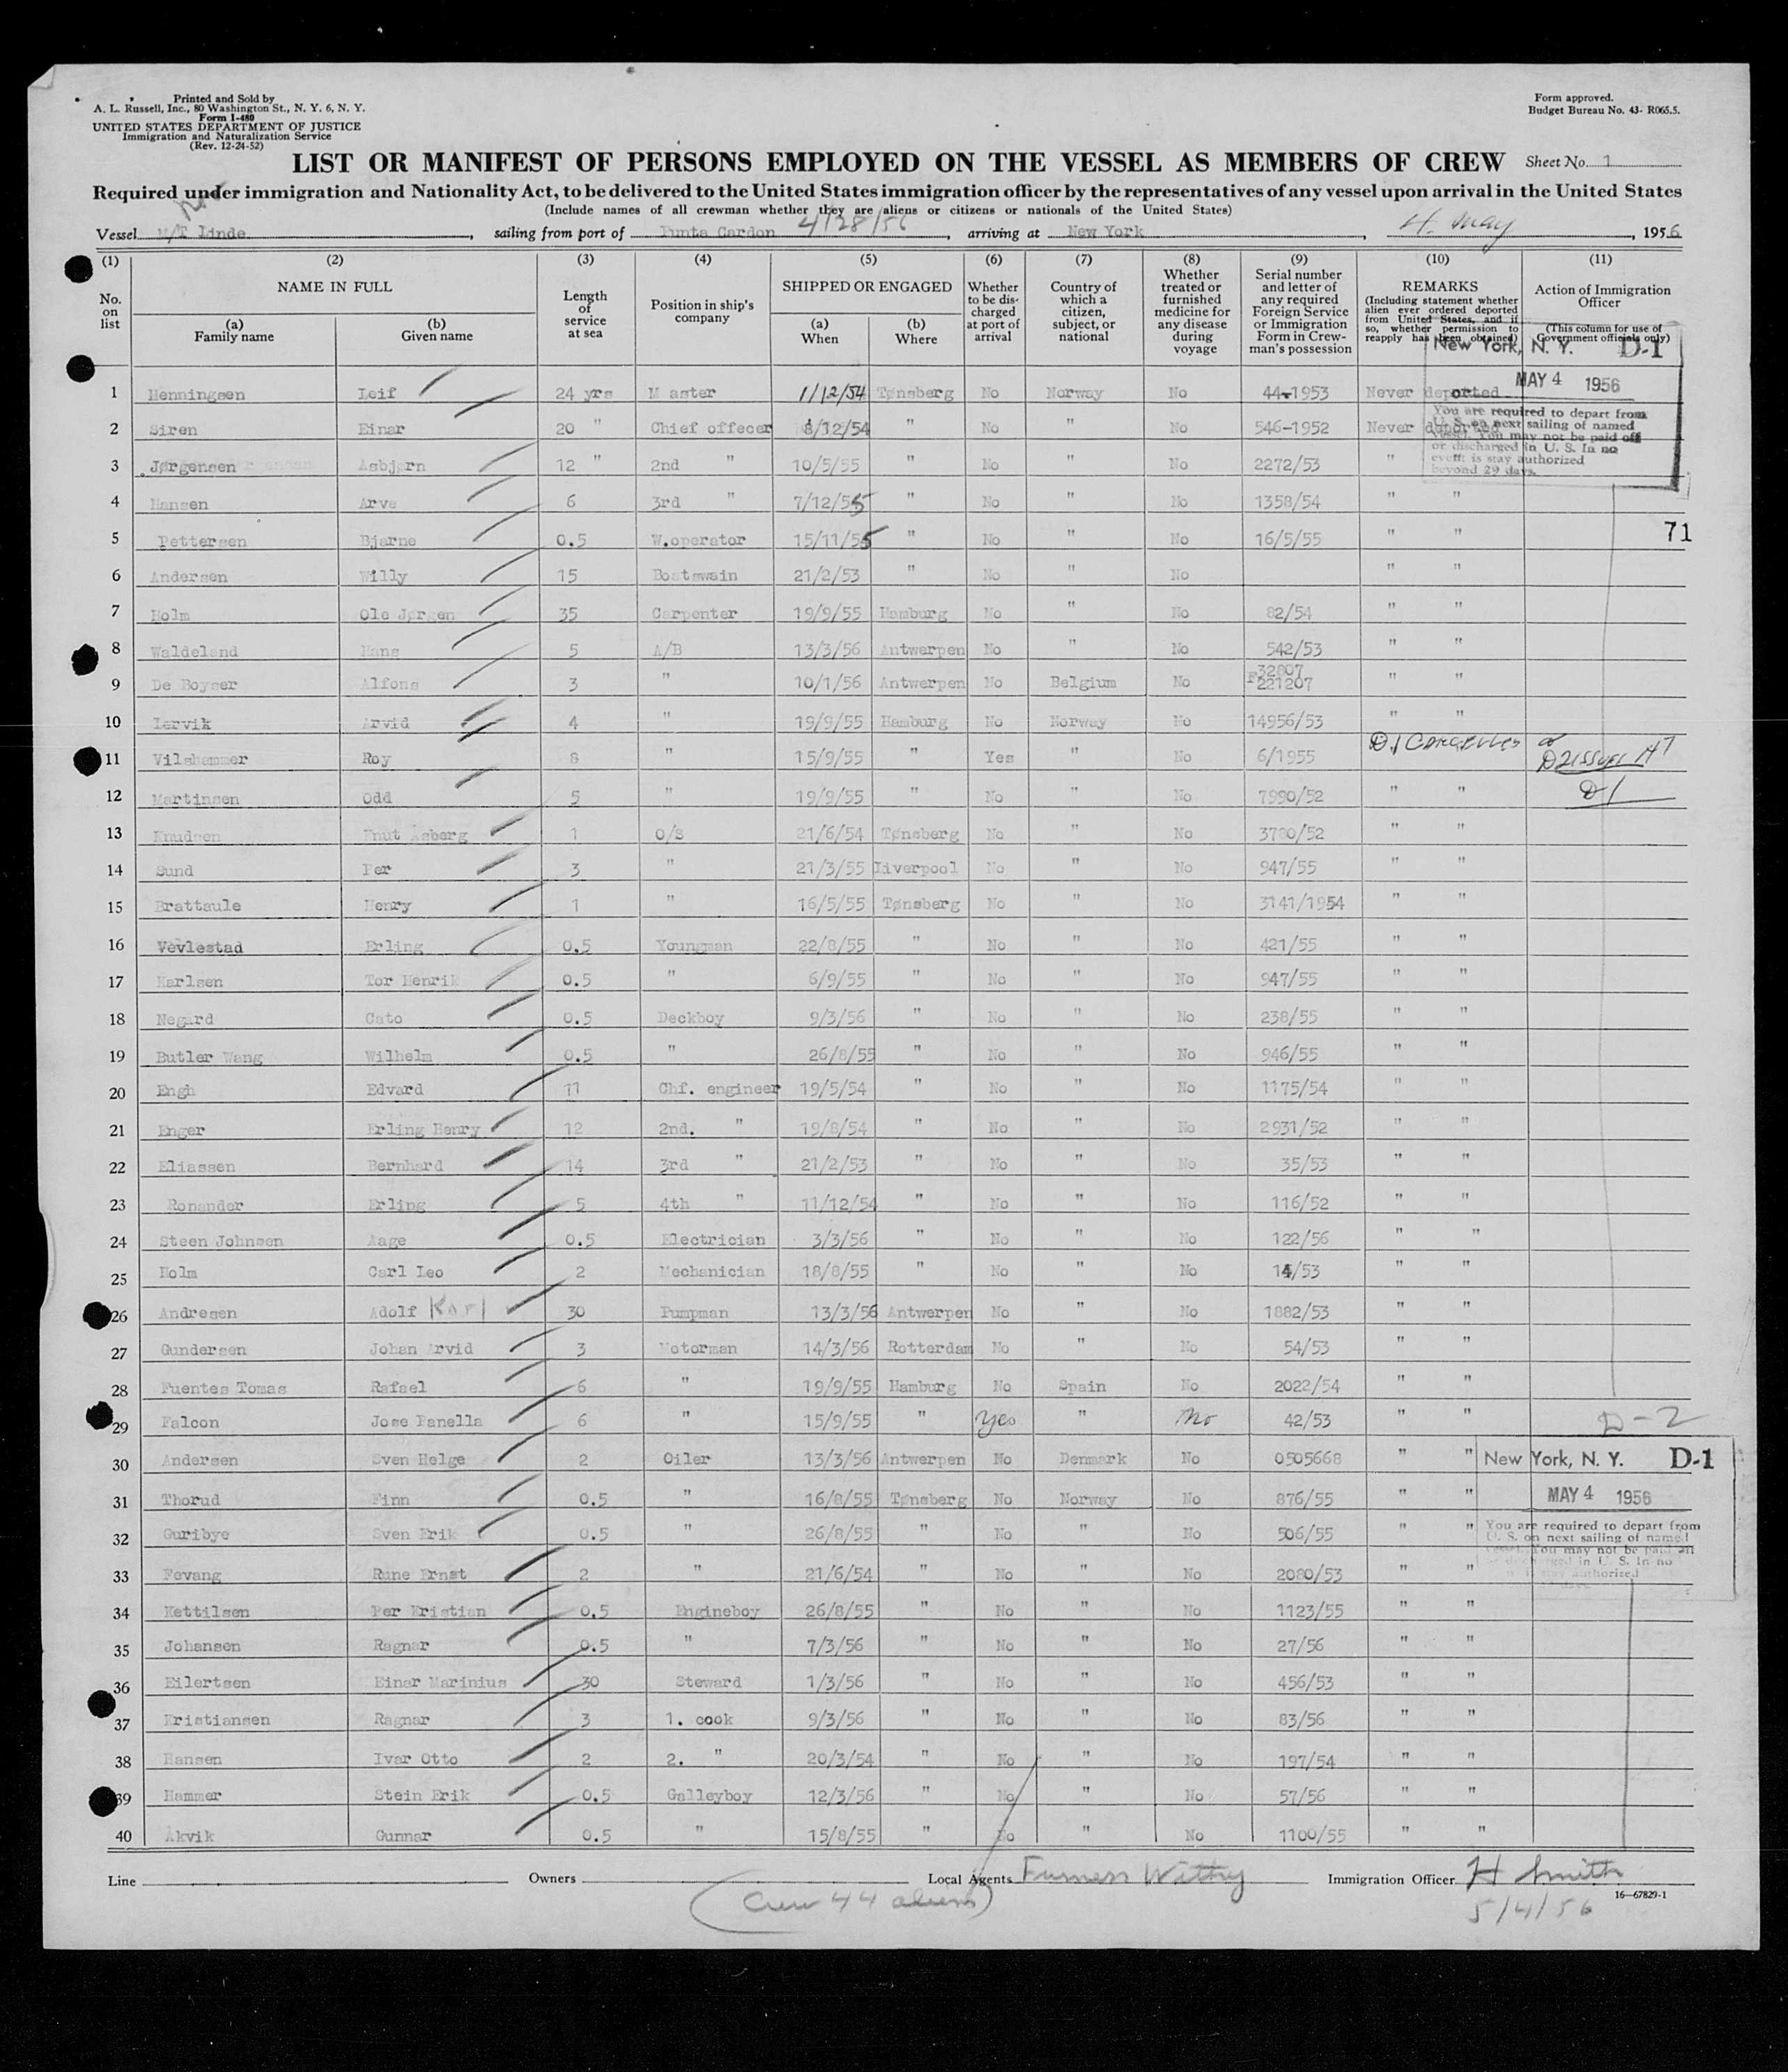 Printed and Sold by
A. L. Russell, Inc., 80 Washington St., N. Y. 6, N. Y.
Form I-480
UNITED STATES DEPARTMENT OF JUSTICE
Immigration and Naturalization Service
(Rev. 12-24-52)
Form approved.
Budget Bureau No. 43- R065.5.
LIST OR MANIFEST OF PERSONS EMPLOYED ON THE VESSEL AS MEMBERS OF CREW Sheet No. 1
Required under immigration and Nationality Act, to be delivered to the United States immigration officer by the representatives of any vessel upon arrival in the United States
(Include names of all crewman whether they are aliens or citizens or nationals of the United States)
Vessel M/T Linde, sailing from port of Punta Cardon 4/28/56, arriving at New York, 4. May, 1956
(1) (2) (3) (4) (5) (6) (7) (8) (9) (10) (11)
No. on list
NAME IN FULL
(a) Family name
(b) Given name
Length of service at sea
Position in ship's company
SHIPPED OR ENGAGED
(a) When
(b) Where
Whether to be discharged at port of arrival
Country of which a citizen, subject, or national
Whether treated or furnished medicine for any disease during voyage
Serial number and letter of any required Foreign Service or Immigration Form in Crewman's possession
REMARKS
(Including statement whether alien ever ordered deported from United States, and if so, whether permission to reapply has been obtained)
Action of Immigration Officer
(This column for use of Government officials only)
New York, N. Y. D-1
MAY 4 1956
You are required to depart from
U. S. on next sailing of named
vessel. You may not be paid off
or discharged in U. S. In no
event is stay authorized
beyond 29 days.
1 Henningsen Leif 24 yrs M aster 1/12/54 Tønsberg No Norway No 44-1953 Never deported
2 Siren Einar 20 " Chief offecer 8/12/54 " No " No 546-1952 Never deported
3 Jørgensen Asbjørn 12 " 2nd " 10/5/55 " No " No 2272/53 "
4 Hansen Arve 6 3rd " 7/12/55 " No " No 1358/54 " "
5 Pettersen Bjarne 0.5 W.operator 15/11/55 " No " No 16/5/55 " " 71
6 Andersen Willy 15 Boatswain 21/2/53 " No " No " "
7 Holm Ole Jørgen 35 Carpenter 19/9/55 Hamburg No " No 82/54 " "
8 Waldeland Hans 5 A/B 13/3/56 Antwerpen No " No 542/53 " "
9 De Boyser Alfons 3 " 10/1/56 Antwerpen No Belgium No 32807 F221207 " "
10 Lervik Arvid 4 " 19/9/55 Hamburg No Norway No 14956/53 " "
11 Vilshammer Roy 8 " 15/9/55 " Yes " No 6/1955 D.1 Cancelled
12 Martinsen Odd 5 " 19/9/55 " No " No 7990/52 " " D1
13 Knudsen Knut Asberg 1 O/S 21/6/54 Tønsberg No " No 3780/52 " "
14 Sund Per 3 " 21/3/55 Liverpool No " No 947/55 " "
15 Brattaule Henry 1 " 16/5/55 Tønsberg No " No 3141/1954 " "
16 Vevlestad Erling 0.5 Youngman 22/8/55 " No " No 421/55 " "
17 Karlsen Tor Henrik 0.5 " 6/9/55 " No " No 947/55 " "
18 Negård Cato 0.5 Deckboy 9/3/56 " No " No 238/55 " "
19 Butler Wang Wilhelm 0.5 " 26/8/55 " No " No 946/55 " "
20 Engh Edvard 11 Chf. engineer 19/5/54 " No " No 1175/54 " "
21 Enger Erling Henry 12 2nd. " 19/8/54 " No " No 2931/52 " "
22 Eliassen Bernhard 14 3rd " 21/2/53 " No " No 35/53 " "
23 Ronander Erling 5 4th " 11/12/54 " No " No 116/52 " "
24 Steen Johnsen Aage 0.5 Electrician 3/3/56 " No " No 122/56 " "
25 Holm Carl Leo 2 Mechanician 18/8/55 " No " No 14/53 " "
26 Andresen Adolf Karl 30 Pumpman 13/3/56 Antwerpen No " No 1882/53 " "
27 Gundersen Johan Arvid 3 Motorman 14/3/56 Rotterdam No " No 54/53 " "
28 Fuentes Tomas Rafael 6 " 19/9/55 Hamburg No Spain No 2022/54 " "
29 Falcon Jose Panella 6 " 15/9/55 " Yes " No 42/53 " " D-2
30 Andersen Sven Helge 2 Oiler 13/3/56 Antwerpen No Denmark No 0505668 " "
New York, N. Y. D-1
31 Thorud Finn 0.5 " 16/8/55 Tønsberg No Norway No 876/55 " "
MAY 4 1956
32 Guribye Sven Erik 0.5 " 26/8/55 " No " No 506/55 " "
You are required to depart from
U. S. on next sailing of named
vessel. You may not be paid off
33 Fevang Rune Ernst 2 " 21/6/54 " No " No 2080/53 " "
in U. S. In no
authorized
34 Kettilsen Per Kristian 0.5 Engineboy 26/8/55 " No " No 1123/55 " "
35 Johansen Ragnar 0.5 " 7/3/56 " No " No 27/56 " "
36 Eilertsen Einar Marinius 30 Steward 1/3/56 " No " No 456/53 " "
37 Kristiansen Ragnar 3 1. cook 9/3/56 " No " No 83/56 " "
38 Hansen Ivar Otto 2 2. " 20/3/54 " No " No 197/54 " "
39 Hammer Stein Erik 0.5 Galleyboy 12/3/56 " No " No 57/56 " "
40 Åkvik Gunnar 0.5 " 15/8/55 " No " No 1100/55 " "
Line Owners Local Agents Furness Withy Immigration Officer H Smith
16—67829-1
(Crew 44 aliens) 5/4/56